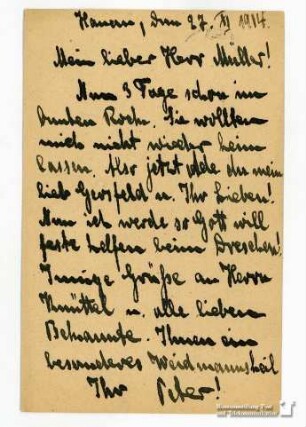 Hanau, den 27. XI 1914.
Mein lieber Herr Müller!
Nun 3 Tage schon im
bunten Rock. Sie wollten
mich nicht wieder heim
lassen. Also jetzt ade du mein
lieb Gersfeld u. Ihr Lieben!
Nun ich werde so Gott will
feste helfen beim Dreschen!
Innige Grüße an Herrn
Knüttel u. alle lieben
Bekannte. Ihnen ein
besonderes Weidmannsheil
Ihr Peter!